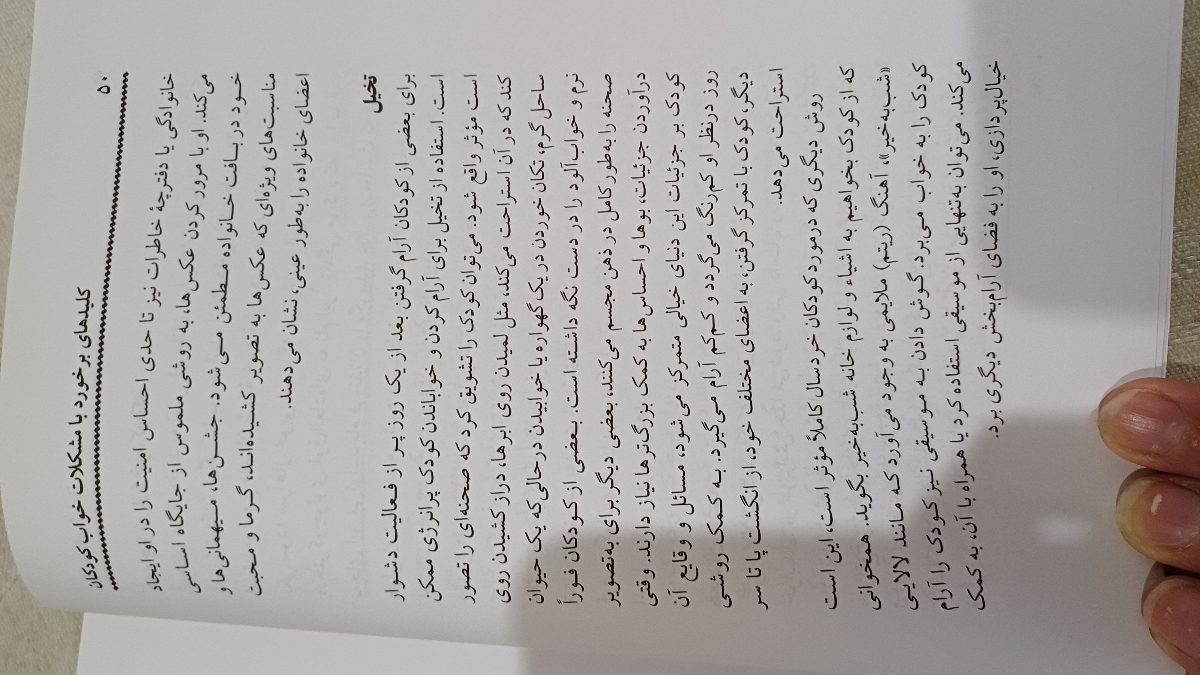 ۵۰
کلیدهای برخورد با مشکلات خواب کودکان
خانوادگی یا دفترچهٔ خاطرات نیز تا حدی احساس امنیت را در او ایجاد
می‌کند. او با مرور کردن عکس‌ها، به روشی ملموس از جایگاه اساسی
خود در بافت خانواده مطمئن می‌شود. جشن‌ها، میهمانی‌ها و
مناسبت‌های ویژه‌ای که عکس‌ها به تصویر کشیده‌اند، گرما و محبت
اعضای خانواده را به‌طور عینی، نشان می‌دهند.
تخیل
برای بعضی از کودکان آرام گرفتن بعد از یک روز پر از فعالیت دشوار
است. استفاده از تخیل برای آرام کردن و خواباندن کودک پرانرژی ممکن
است مؤثر واقع شود. می‌توان کودک را تشویق کرد که صحنه‌ای را تصور
کند که در آن استراحت می‌کند، مثل لمیدن روی ابرها، دراز کشیدن روی
ساحل گرم، تکان خوردن در یک گهواره یا خوابیدن درحالی‌که یک حیوان
نرم و خواب‌آلود را در دست نگه داشته است. بعضی از کودکان فوراً
صحنه را به‌طور کامل در ذهن مجسم می‌کنند، بعضی دیگر برای به‌تصویر
درآوردن جزئیات، بوها و احساس‌ها به کمک بزرگ‌ترها نیاز دارند. وقتی
کودک بر جزئیات این دنیای خیالی متمرکز می‌شود، مسائل و وقایع آن
روز درنظر او کم‌رنگ می‌گردد و کم‌کم آرام می‌گیرد. به کمک روشی
دیگر، کودک با تمرکز گرفتن، به اعضای مختلف خود، از انگشت پا تا سر
استراحت می‌دهد.
روش دیگری که درمورد کودکان خردسال کاملاً مؤثر است، این است
که از کودک بخواهیم به اشیاء و لوازم خانه شب‌به‌خیر بگوید. همخوانی
«شب‌به‌خیر»، آهنگ (ریتم) ملایمی به وجود می‌آورد که مانند لالایی
کودک را به خواب می‌برد. گوش دادن به موسیقی نیز کودک را آرام
می‌کند. می‌توان به‌تنهایی از موسیقی استفاده کرد یا همراه با آن، به کمک
خیال‌پردازی، او را به فضای آرام‌بخش دیگری برد.